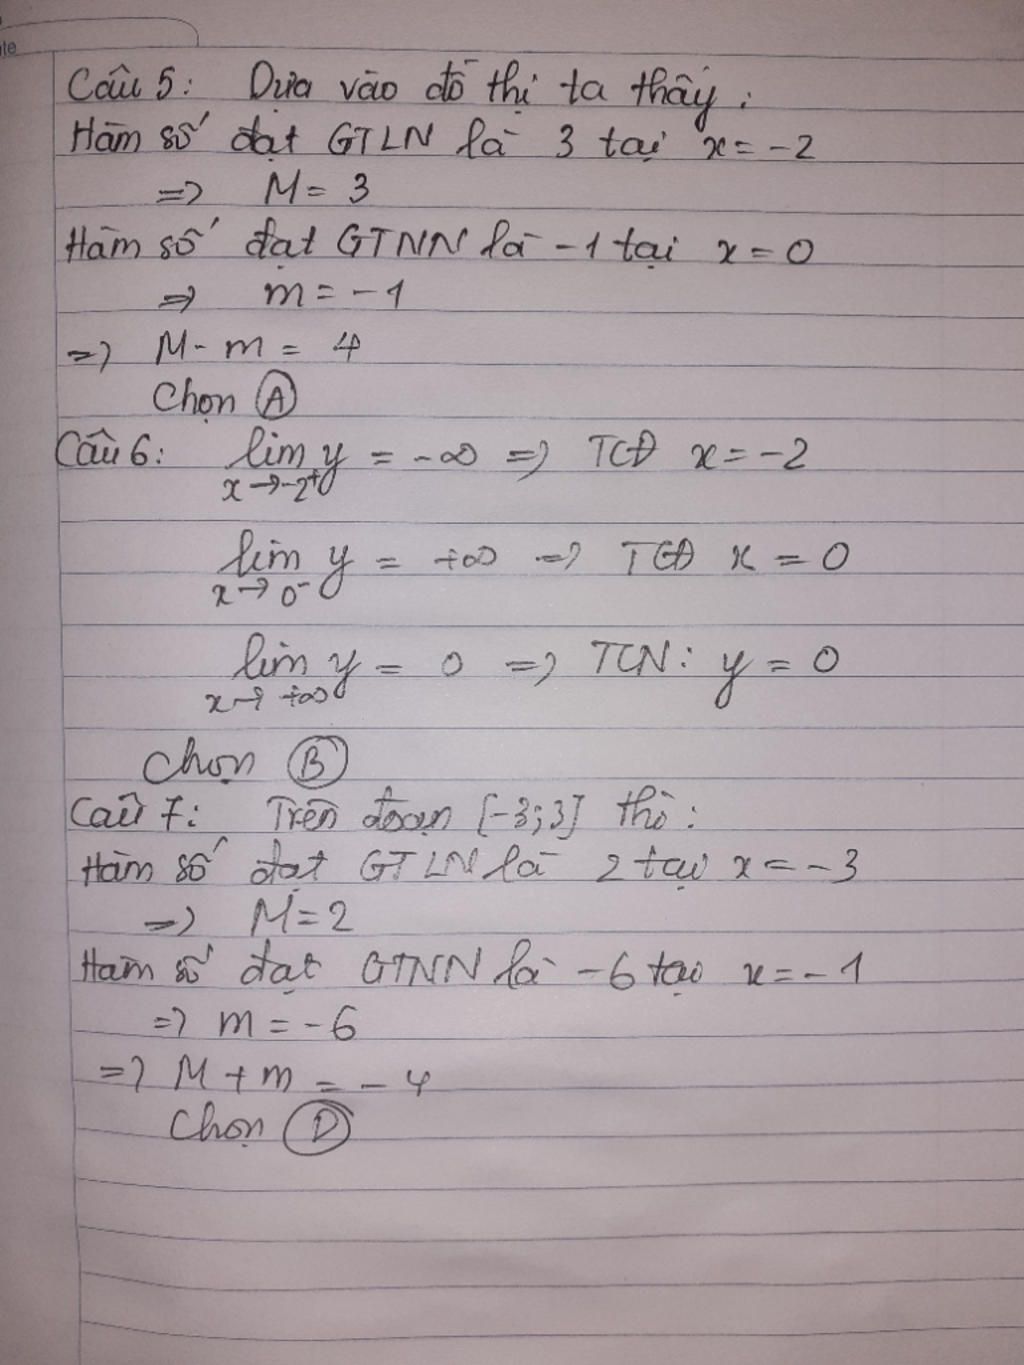 Câu 5: Dựa vào đồ thị ta thấy:
Hàm số đạt GTLN là 3 tại x = -2
=> M = 3
Hàm số đạt GTNN là -1 tại x = 0
=> m = -1
=> M - m = 4
Chọn A
Câu 6: lim y = -∞ => TCĐ x = -2
x→-2⁺
lim y = +∞ => TCĐ x = 0
x→0⁻
lim y = 0 => TCN: y = 0
x→+∞
Chọn B
Câu 7: Trên đoạn [-3;3] thì:
Hàm số đạt GTLN là 2 tại x = -3
=> M = 2
Hàm số đạt GTNN là -6 tại x = -1
=> m = -6
=> M + m = -4
Chọn D